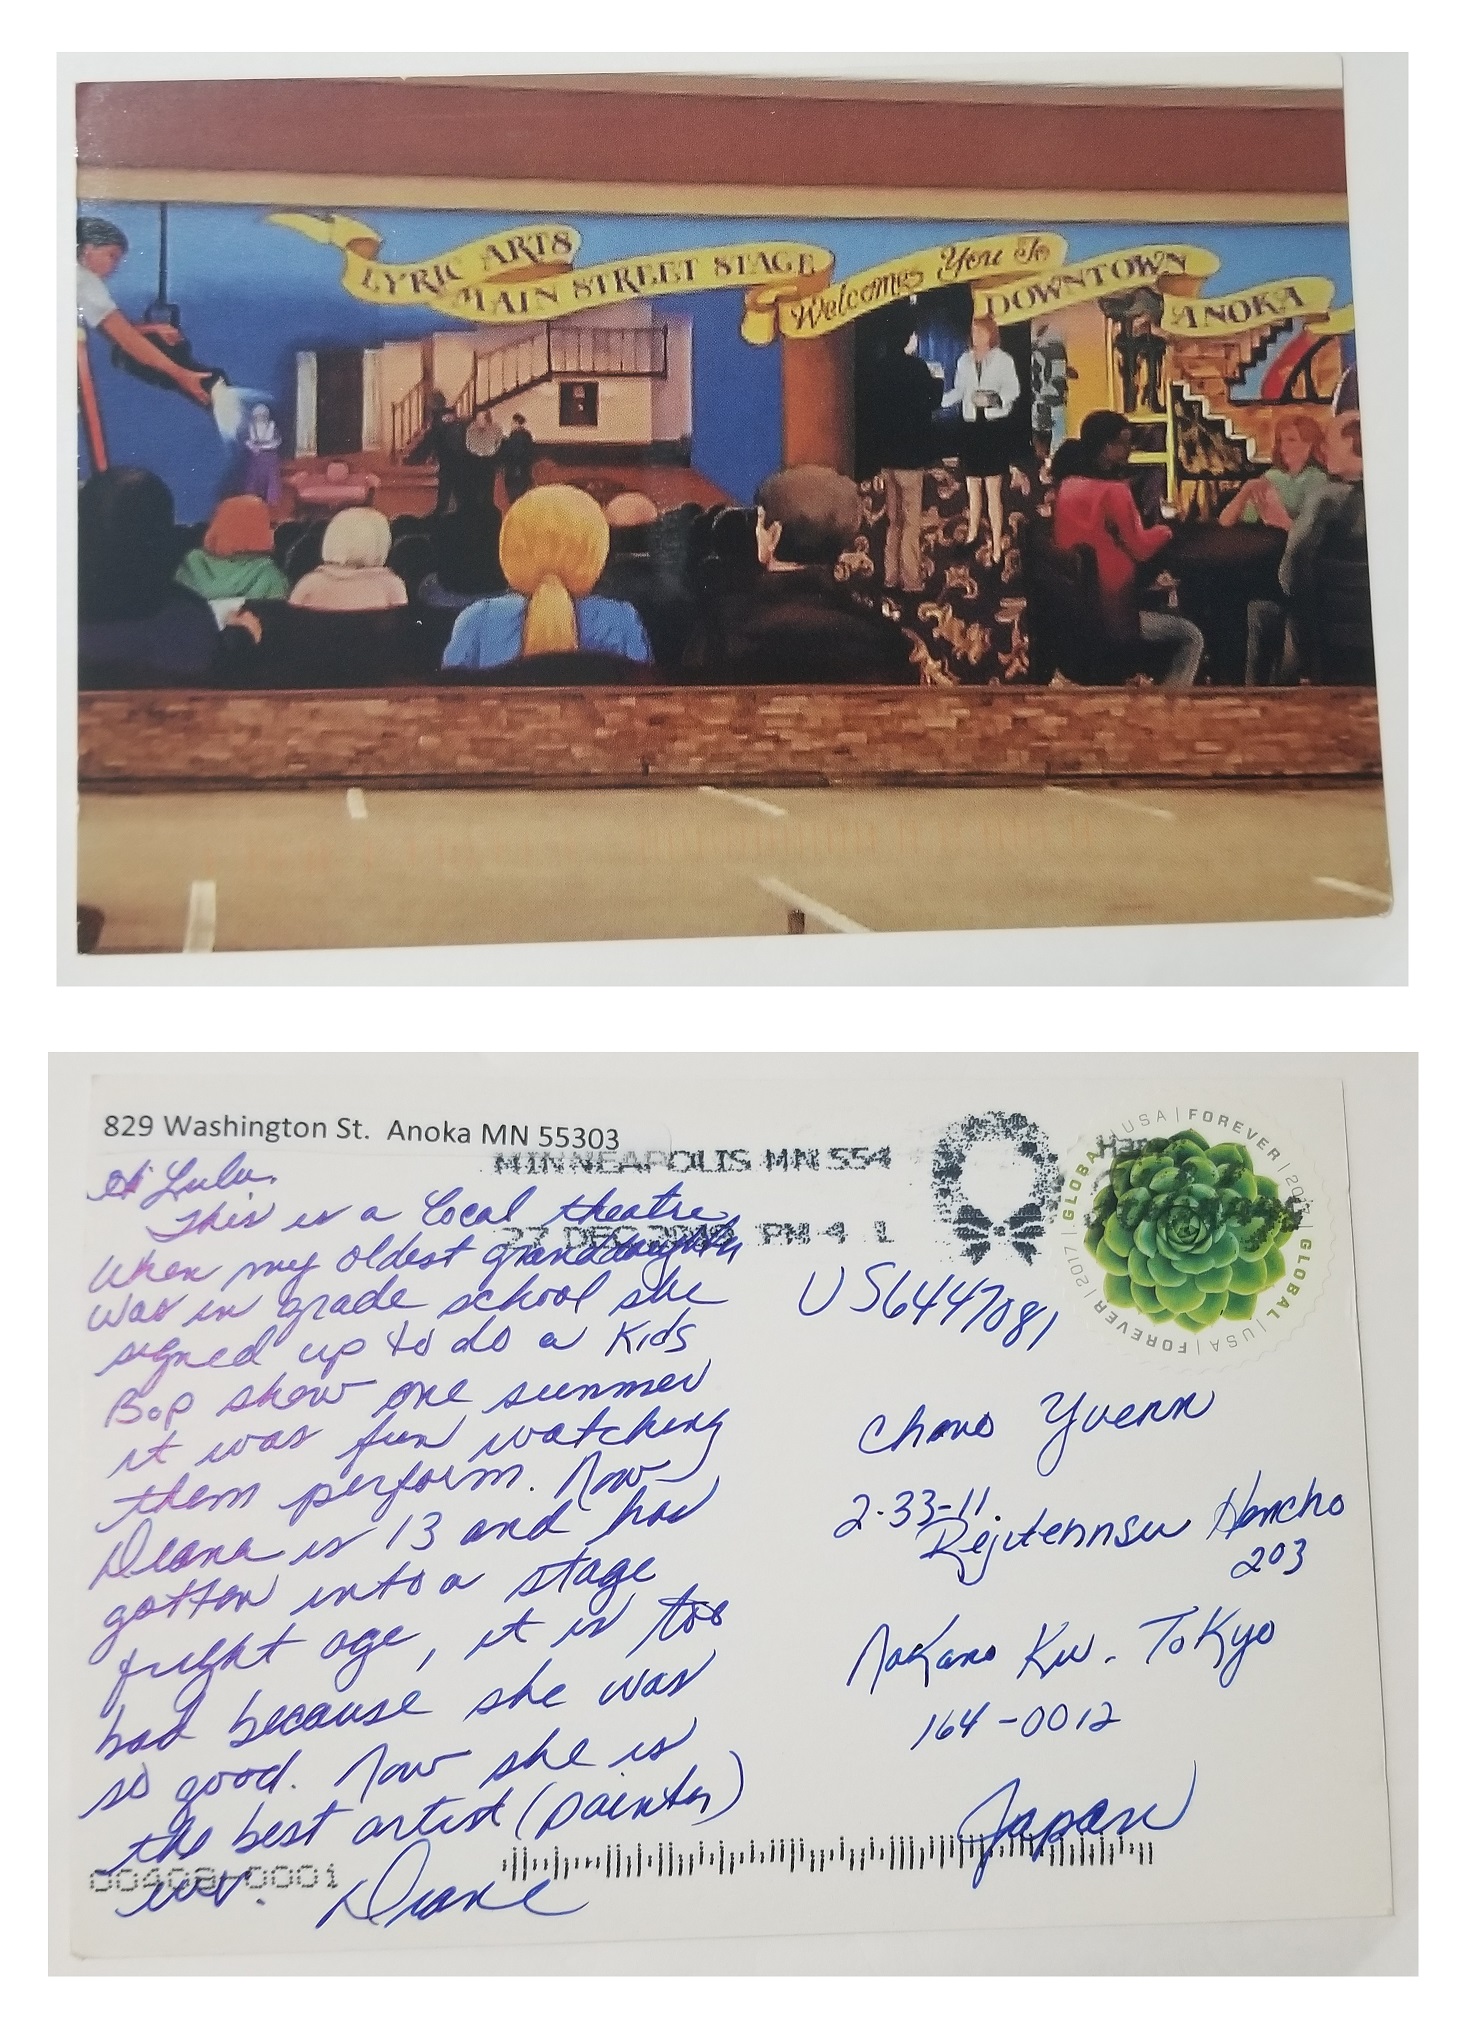 LYRIC ARTS
MAIN STREET STAGE
Welcomes You To
DOWNTOWN
ANOKA
829 Washington St. Anoka MN 55303
MINNEAPOLIS MN 554
27 DEC PM 4 L
GLOBAL | USA | FOREVER | 2017 | GLOBAL | USA | FOREVER | 2017 |
Hi Lulu.
This is a local theatre,
When my oldest granddaughter
was in grade school she
signed up to do a Kids
Bop show one summer
it was fun watching
them perform. Now
Diana is 13 and has
gotten into a stage
fright age, it is too
bad because she was
so good. Now she is
the best artist (painter)
ever. Diane
US6447081
Chono Yuenn
2-33-11.
Rejitennsu Honcho
203
Nakano Ku. Tokyo
164-0012
Japan
00408-0001